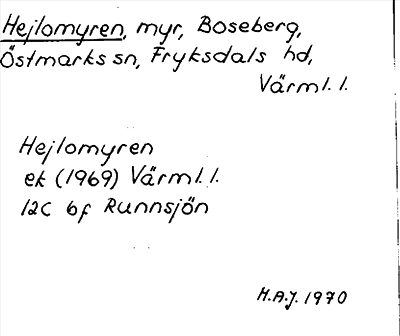 Hejlomyren, myr, Boseberg,
Östmarks sn, Fryksdals hd,
Värml. l.
Hejlomyren
ek (1969) Värml. l.
12C 6f Runnsjön
H.A.J. 1970